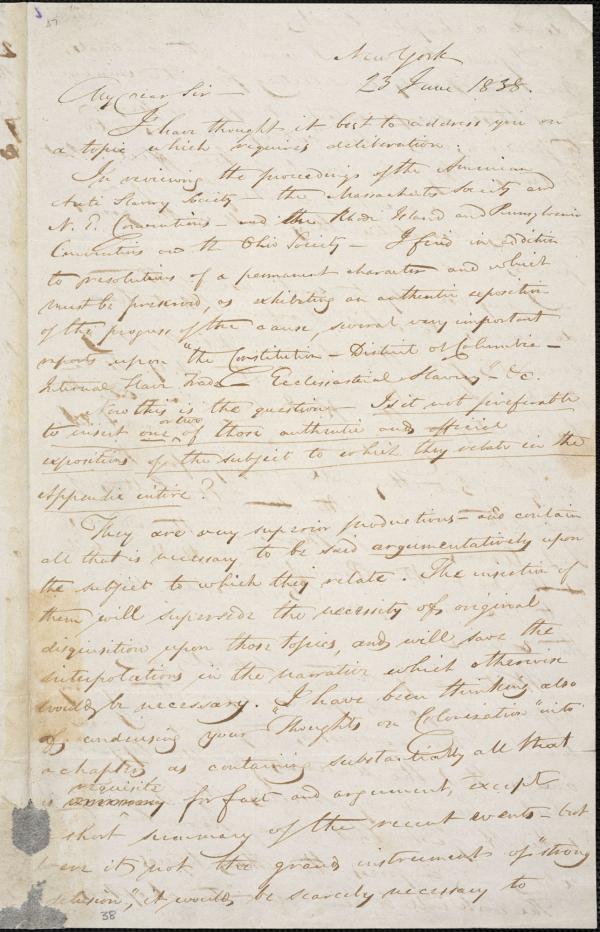 New York
23 June 1838.
My Dear Sir
I have thought it best to address you on
a topic which requires deliberation.
In reviewing the proceedings of the American
Anti Slavery Society — the Massachusetts Society and
N. E. Conventions — and the Rhode Island and Pennsylvania
Conventions and the Ohio Society — I find in addition
to resolutions of a permanent character and which
must be preserved, as exhibiting an authentic exposition
of the progress of the cause, several very important
reports upon "the Constitution — District of Columbia —
Internal Slave Trade — Ecclesiastical Slavery" — &c.
Now this is the question — Is it not preferable
to insert one or two of those authentic and official
expositions of the subject to which they relate in the
Appendix entire?
They are very superior productions — and contain
all that is necessary to be said argumentatively upon
the subject to which they relate. The insertion of
them will supersede the necessity of original
disquisition upon those topics, and will save the
interpolations in the narrative which otherwise
would be necessary. I have been thinking also
of condensing your "Thoughts on Colonization" into
a chapter, as containing substantially all that
is requisite for fact and argument, except
short summary of the recent events — but
were it not the grand instrument of "strong
delusion," it would be scarcely necessary to
38